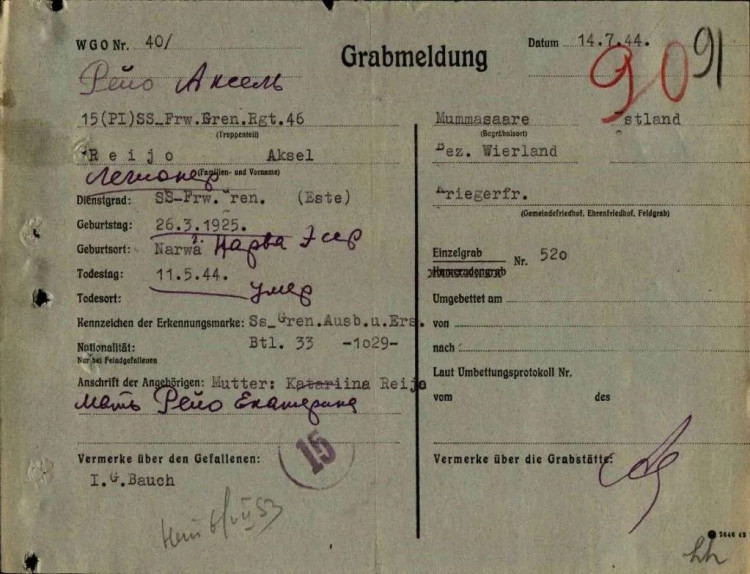 WGO Nr. 40/
Grabmeldung
Datum 14.7.44.
90 91
Рейо Аксель
15(PI)SS_Frw.Gren.Rgt.46
(Truppenteil)
Reijo Aksel
(Familien- und Vorname)
легионер
Dienstgrad: SS-Frw. ren. (Este)
Geburtstag: 26.3.1925.
Geburtsort: Narwa Нарва Эсср
Todestag: 11.5.44.
Todesort: умер
Kennzeichen der Erkennungsmarke: Ss_Gren.Ausb.u.Ers.
Nationalität: Btl. 33 -1029-
Nur bei Feindgefallenen
Anschrift der Angehörigen: Mutter: Katariina Reijo
мать Рейо Екатерина
Vermerke über den Gefallenen:
I.G.Bauch
15
Mummasaare stland
(Begräbnisort)
Bez. Wierland
Kriegerfr.
(Gemeindefriedhof, Ehrenfriedhof, Feldgrab)
Einzelgrab
Kameradengrab
Nr. 52o
Umgebettet am
von
nach
Laut Umbettungsprotokoll Nr.
vom des
Vermerke über die Grabstätte: